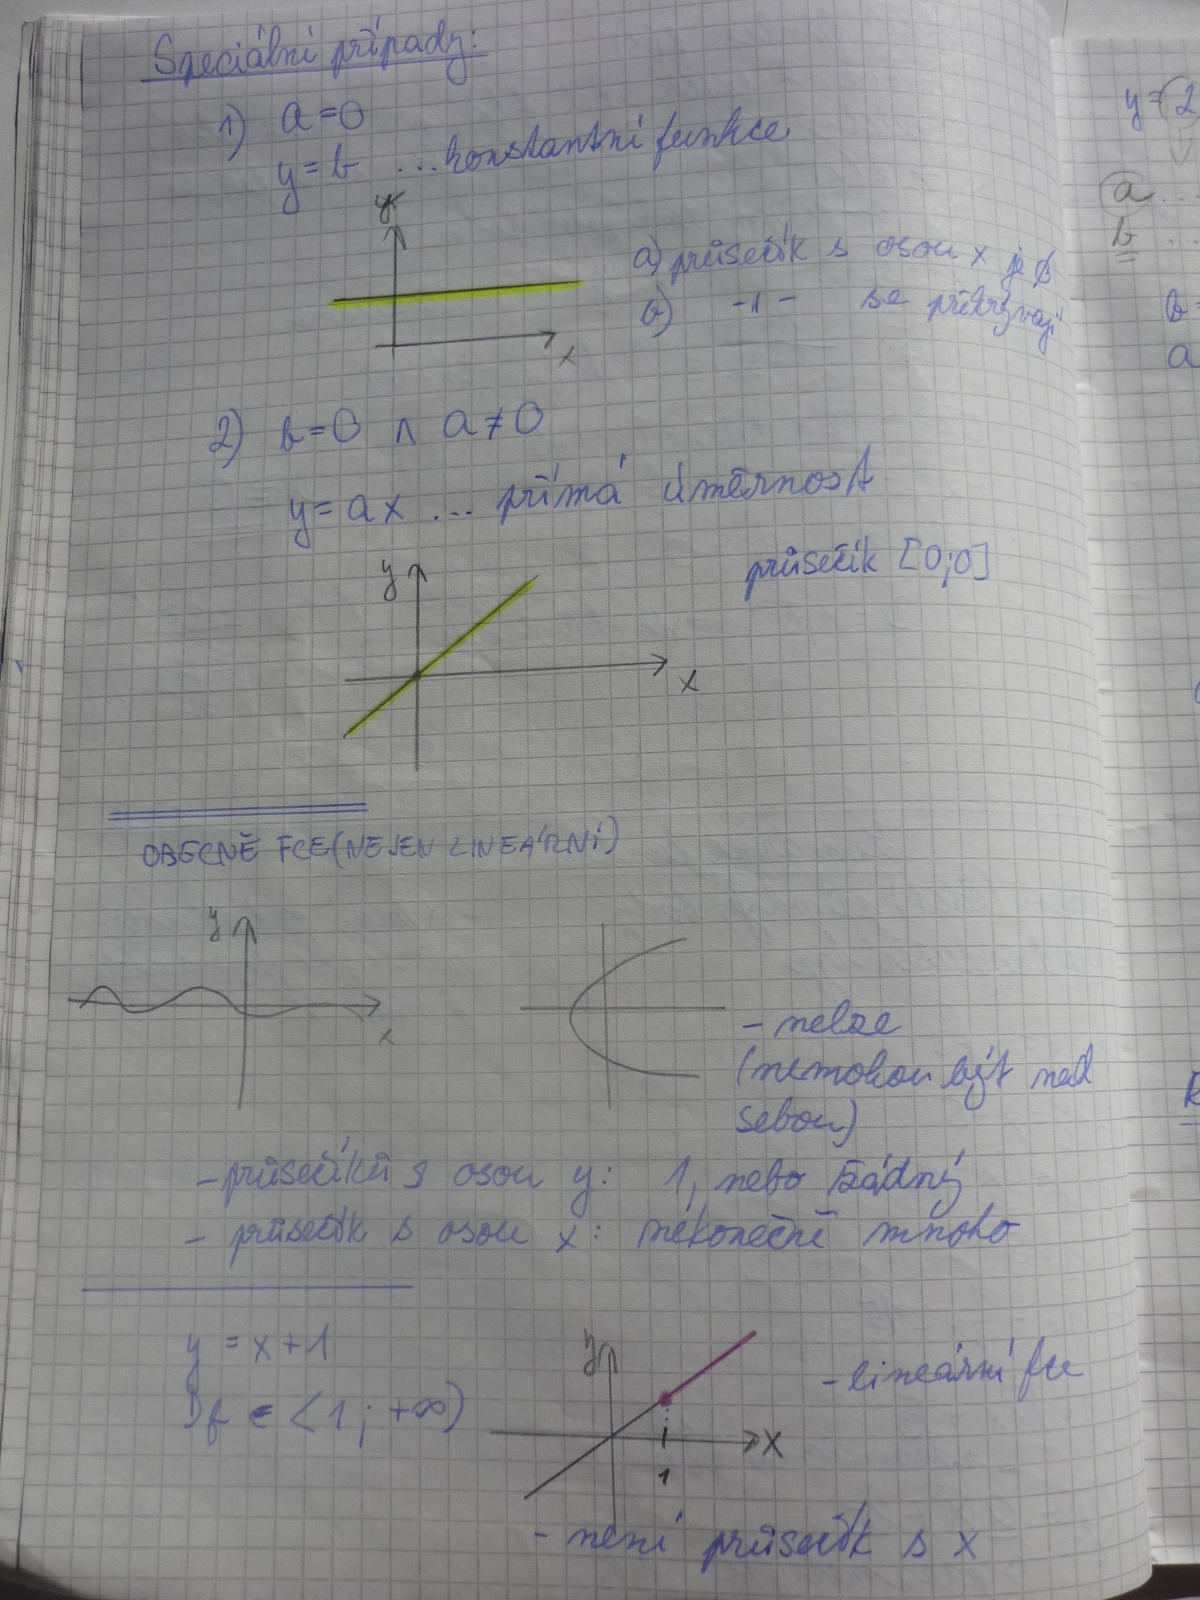 Speciální případy:
1) a=0
y=b ...konstantní funkce
y
x
a) průsečík s osou x je ∅
b) -11- se překrývají
2) b=0 ∧ a≠0
y=ax ... přímá úměrnost
průsečík [0;0]
y
x
OBECNĚ FCE (NEJEN LINEÁRNÍ)
y
x
- nelze
(nemohou být nad
sebou)
- průsečíků s osou y: 1, nebo žádný
- průsečík s osou x: nekonečně mnoho
y = x+1
Df = <1; +∞)
y
x
1
- lineární fce
- není průsečík s x
y=2
a ...
b ...
b=
a